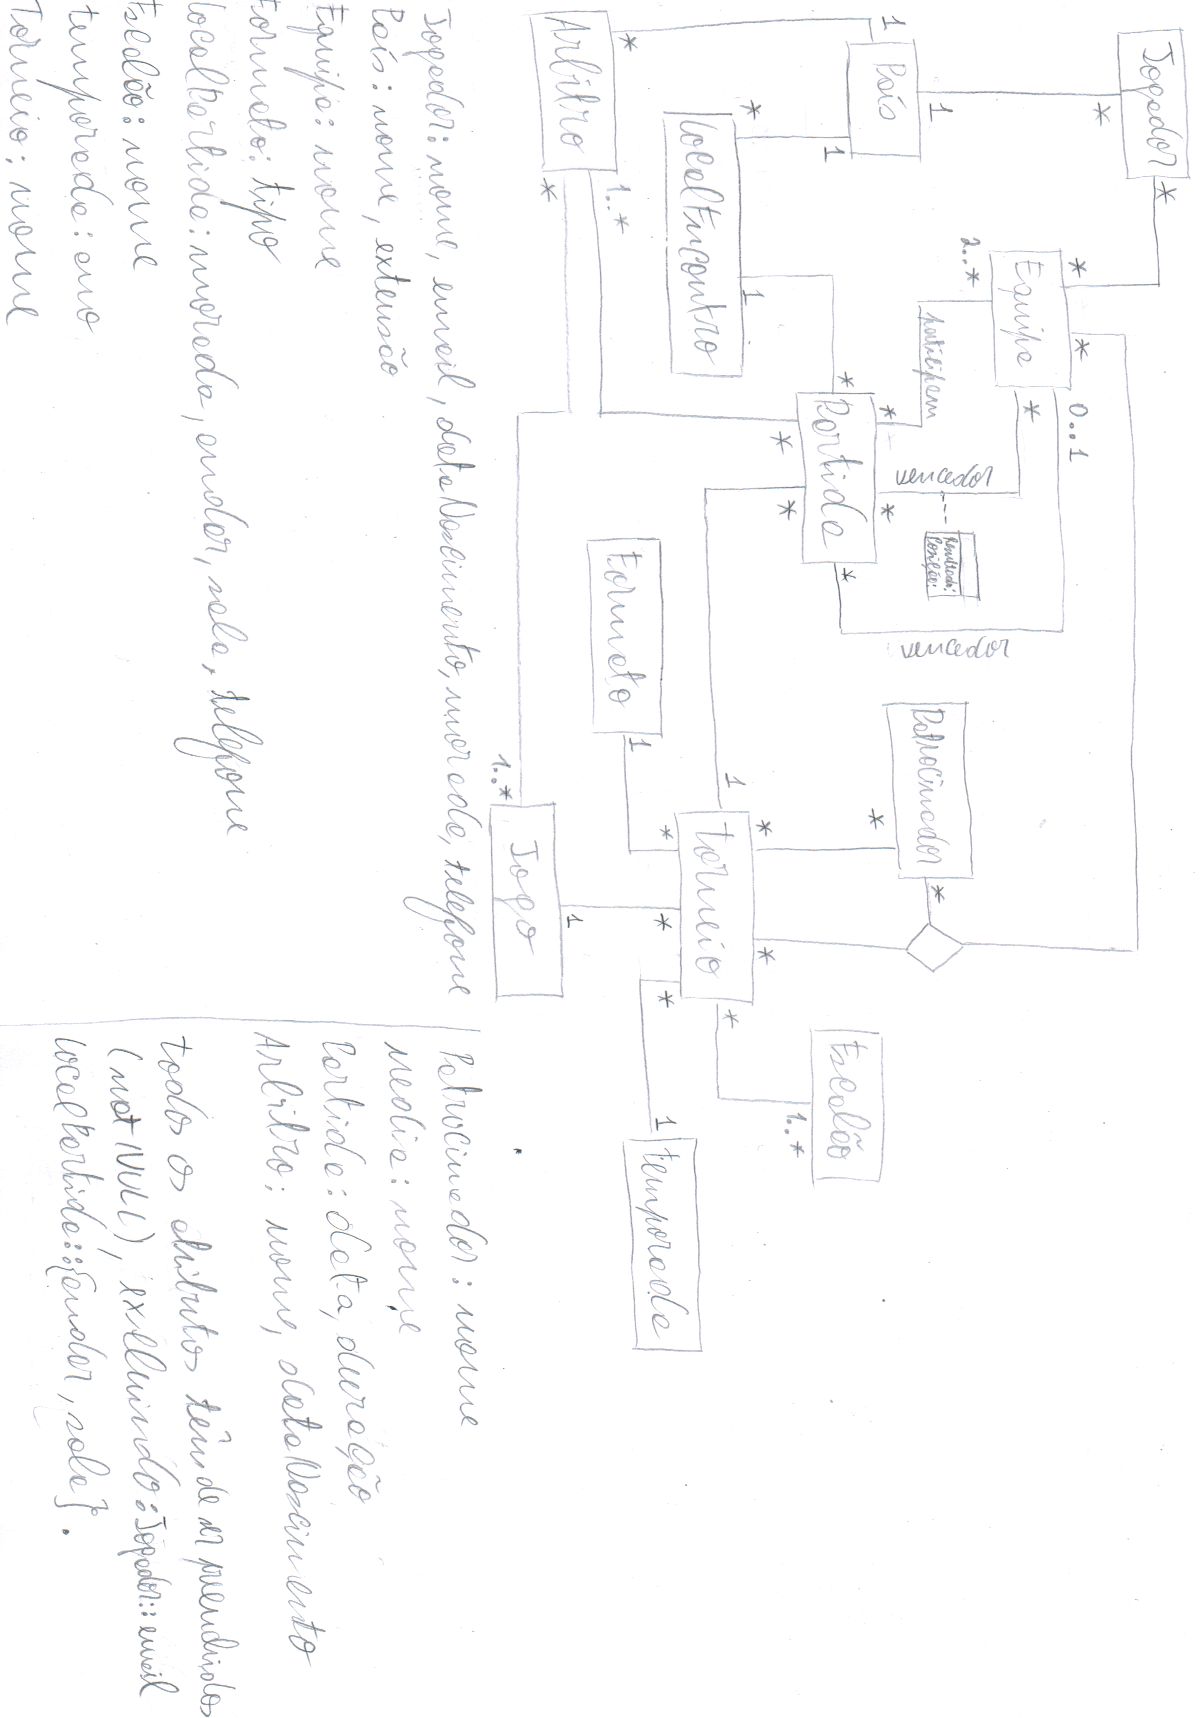 Jogador
*
*
1
País
1
1
*
Arbitro
*
1..*
*
LocalEncontro
1
*
Equipa
*
2..*
*
*
0..1
participam
*
*
Partida
*
*
*
*
vencedor
Resultado:
Posição:
vencedor
Formato
1
Patrocinador
*
*
1
*
*
Torneio
*
*
*
*
1..*
Jogo
1
Escalão
1..*
1
Temporada
Jogador: nome, email, dataNascimento, morada, telefone
País: nome, extensão
Equipa: nome
Formato: tipo
LocalPartida: morada, andar, sala, telefone
Escalão: nome
Temporada: ano
Torneio: nome
Patrocinador: nome
Media: nome
Partida: data, duração
Arbitro: nome, dataNascimento
Todos os atributos têm de ser preenchidos
(not NULL), excluindo: Jogador::email
LocalPartida::{andar, sala}.